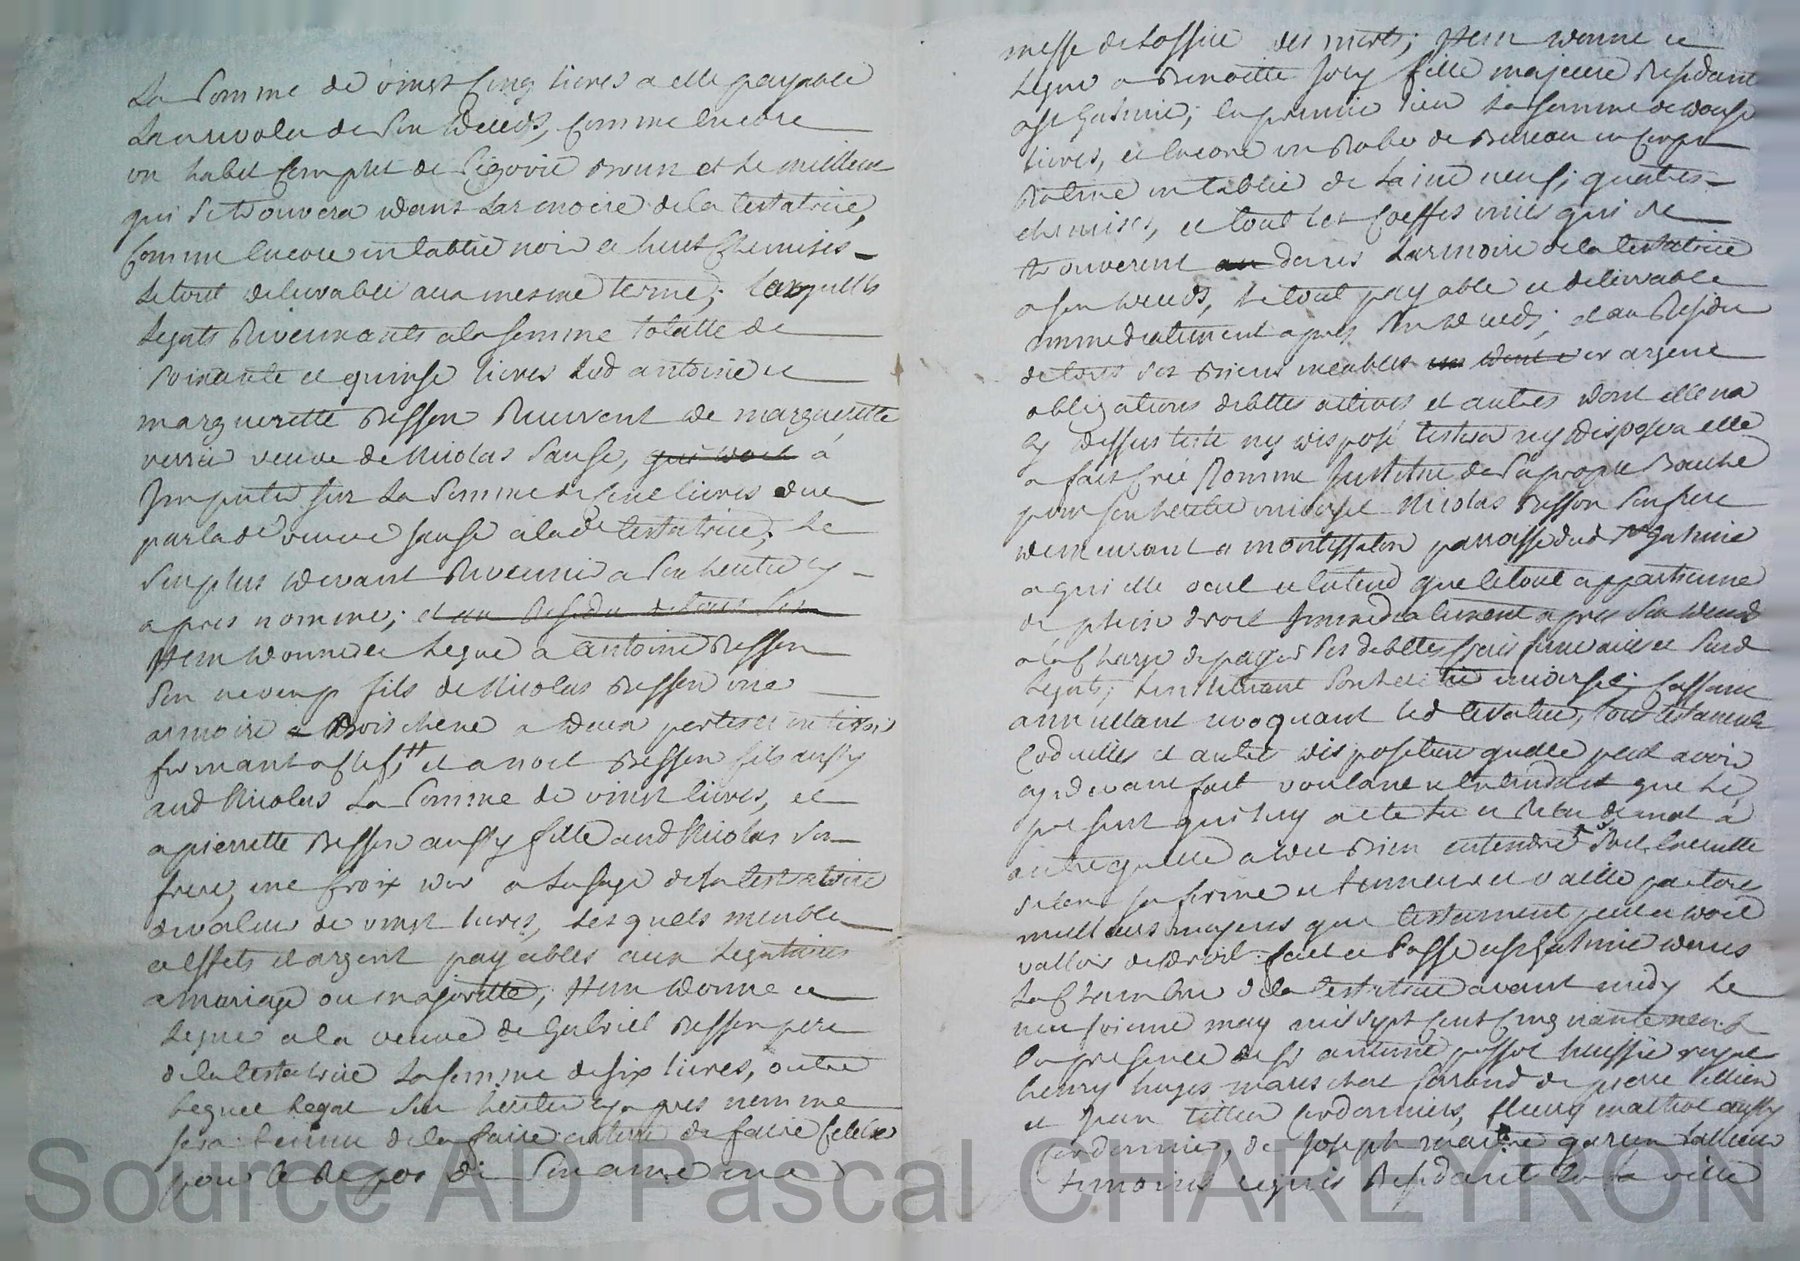 La somme de vingt cinq livres a elle payable
La année de son deceds, comme encore
un habit complet de Segovie brun et le meilleur
qui se trouvera dans Larmoire de la testatrice,
comme encore un tablié noir et huit chemises
le tout delivrable aux mesme terme; lesquels
legats Revenants a la somme totalle de
soixante et quinse livres lesd antoine et
marguerette Besson Reuvront de marguerette
verrie veuve de Nicolas Sause, qui doit à
Imputer sur La somme de livres due
par lade veuve sause a lade testatrice, Le
surplus devant Revenir a son heritier cy
apres nommé; et au Residu de tous ses
Item donne et Legue a antoine Besson
son neveux fils de Nicolas Besson une
armoire Bois chene a deux portes et un tiroir
fermant a clef, et a noel Besson fils aussy
aud Nicolas La somme de vingt livres, et
a pierrette Besson aussy fille aud Nicolas son
frere, une croix d'or a Lusage de la testatrice
de valeur de vingt livres, Lesquels meubles
et effets et argent payables aux Legataires
a mariage ou majoritté; Item donne et
Legue a la veuve de Gabriel Besson pere
de la testatrice La somme de six livres, outre
lequel legat son heritier cy apres nomme
sera tenu de la faire de faire celebrer
pour le Repos de son ame une
messe de Loffice des morts; Item donne et
Legue a Benoitte Joly fille majeure Residant
a st Galmier; en premier lieu La somme de douse
livres, et encore un Robe de Bureau un corps
un tablié de Laine neuf; quatres
chemises, et tout les coeffes unies qui se
trouveront au dans Larmoire de la testatrice
a son deceds, Le tout payable et delivrable
immediatement apres son deceds; et au Residu
de tous ses Biens meubles et argent
obligations debttes actives et autres dont elle na
cy dessus testé ny disposé testera ny disposera elle
a fait Créé Nommé Institué de sa propre Bouche
pour son heritier universel Nicolas Besson son frere
demeurant a montessaton parroisse dud st Galmier
a qui elle veut et entend que le tout appartienne
de plein droit Immediatement apres son deceds
a la Charge de payer ses debttes frais funeraires et susd
Legats; Linstituant son heritier universel; Cassant
annullant revoquant lad testatrice, tout testament
Codicilles et autre disposition quelle peut avoir
cy devant fait voulant et entendant que Le
present qui luy a eté Lu et Relu de mot à
autre quelle a dit Bien entendre soit Executté
selon sa forme et tenneur et vaille par tous
meilleurs moyens que testament peut et doit
valloir de droit. fait et Passé a st Galmier dans
La Chambre de la testatrice avant midy Le
neuvieme may mil sept cent cinquante neuf
En presence de sr antoine huissié royal
henry huges mareschal ferrand de pierre tillier
et Jean tillier Cordonniers, fleury mathot aussy
Cordonnier, de Joseph garcon tailleur
temoins requis Residants En La ville
Source AD Pascal CHARLEYRON